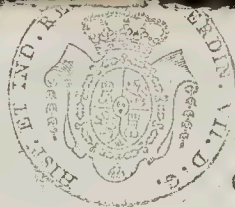 FERDIN. VII. D. G.
HISP. ET IND. R.